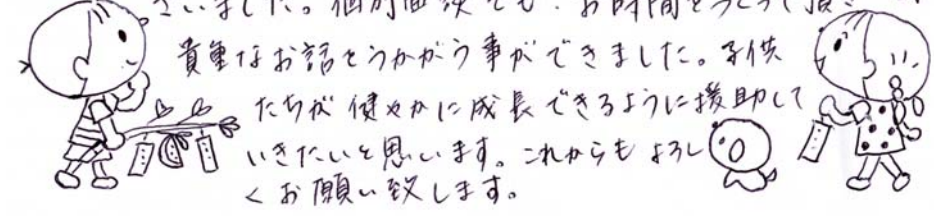 ざいました。個別面談でも、お時間をつくって頂き
貴重なお話をうかがう事ができました。子供
たちが健やかに成長できるように援助して
いきたいと思います。これからもよろし
くお願い致します。